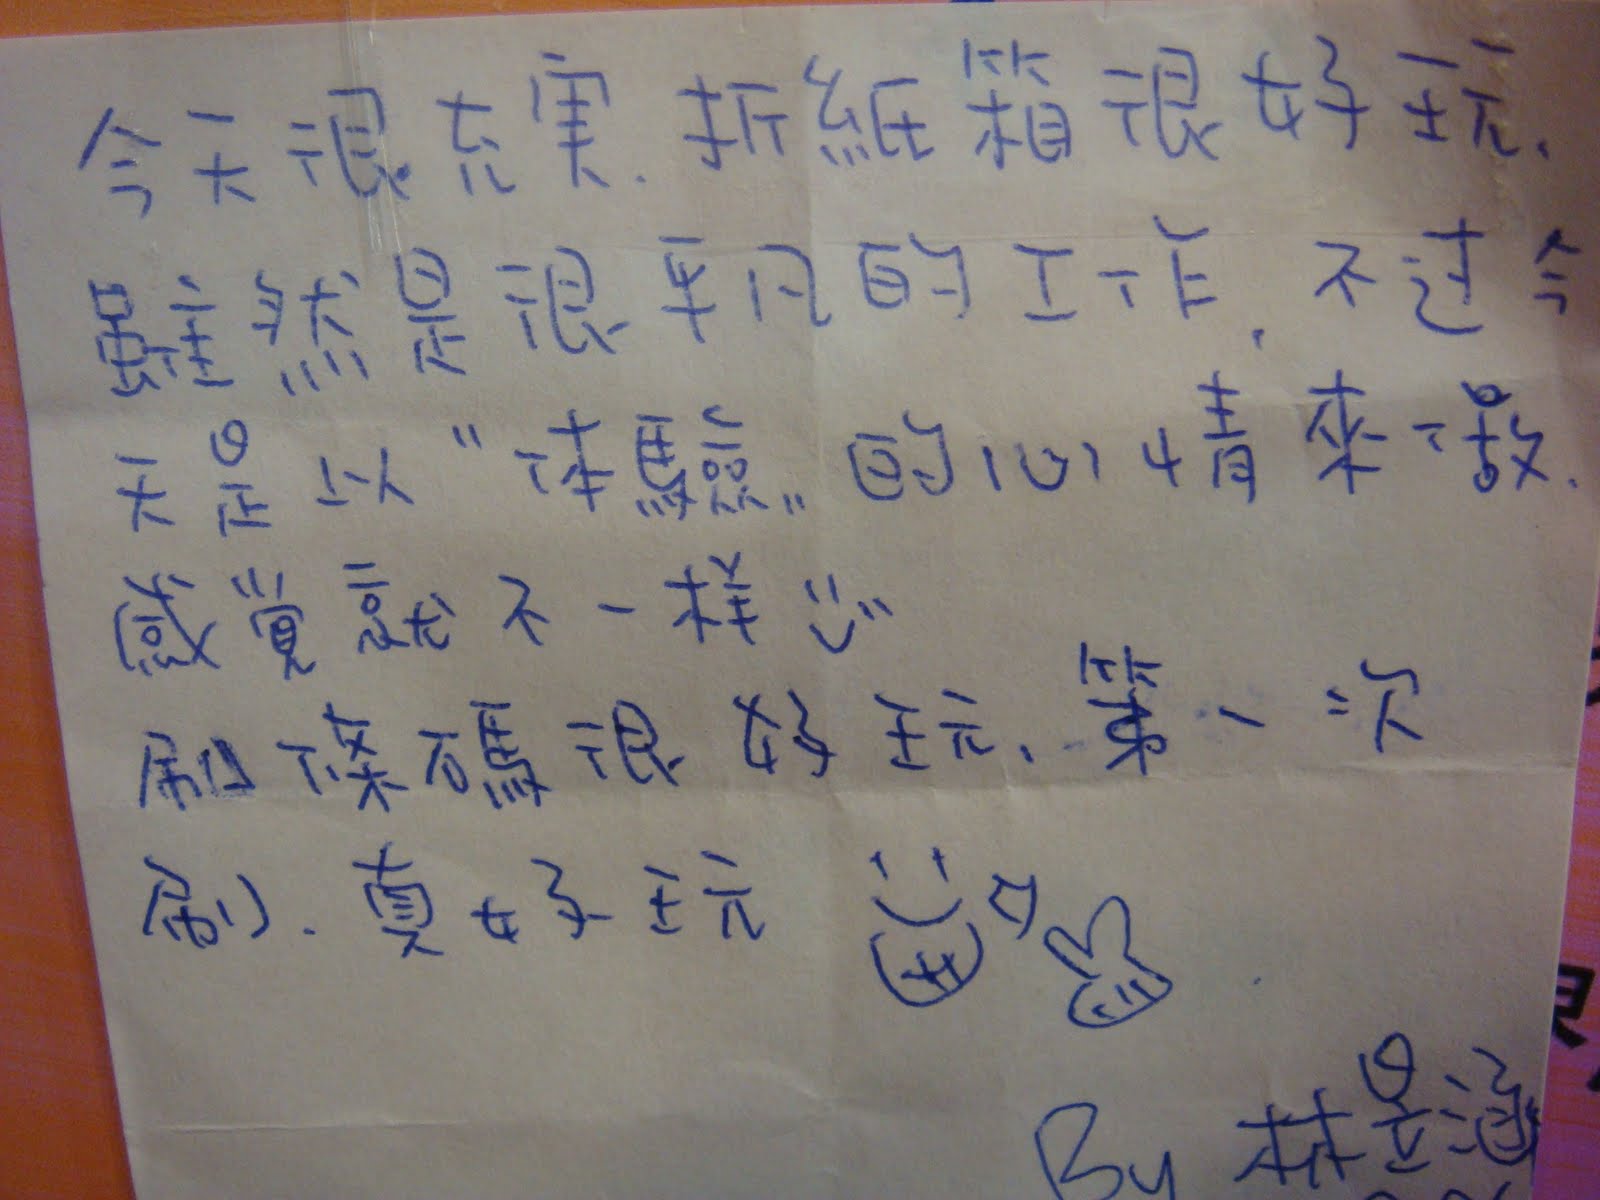 今天很充実.折紙箱很好玩.
雖然是很平凡的工作,不过今
天是以"体驗"的心情來做.
感覚就不一样
刷條碼很好玩.第一次
刷.真好玩
By 林昱涵